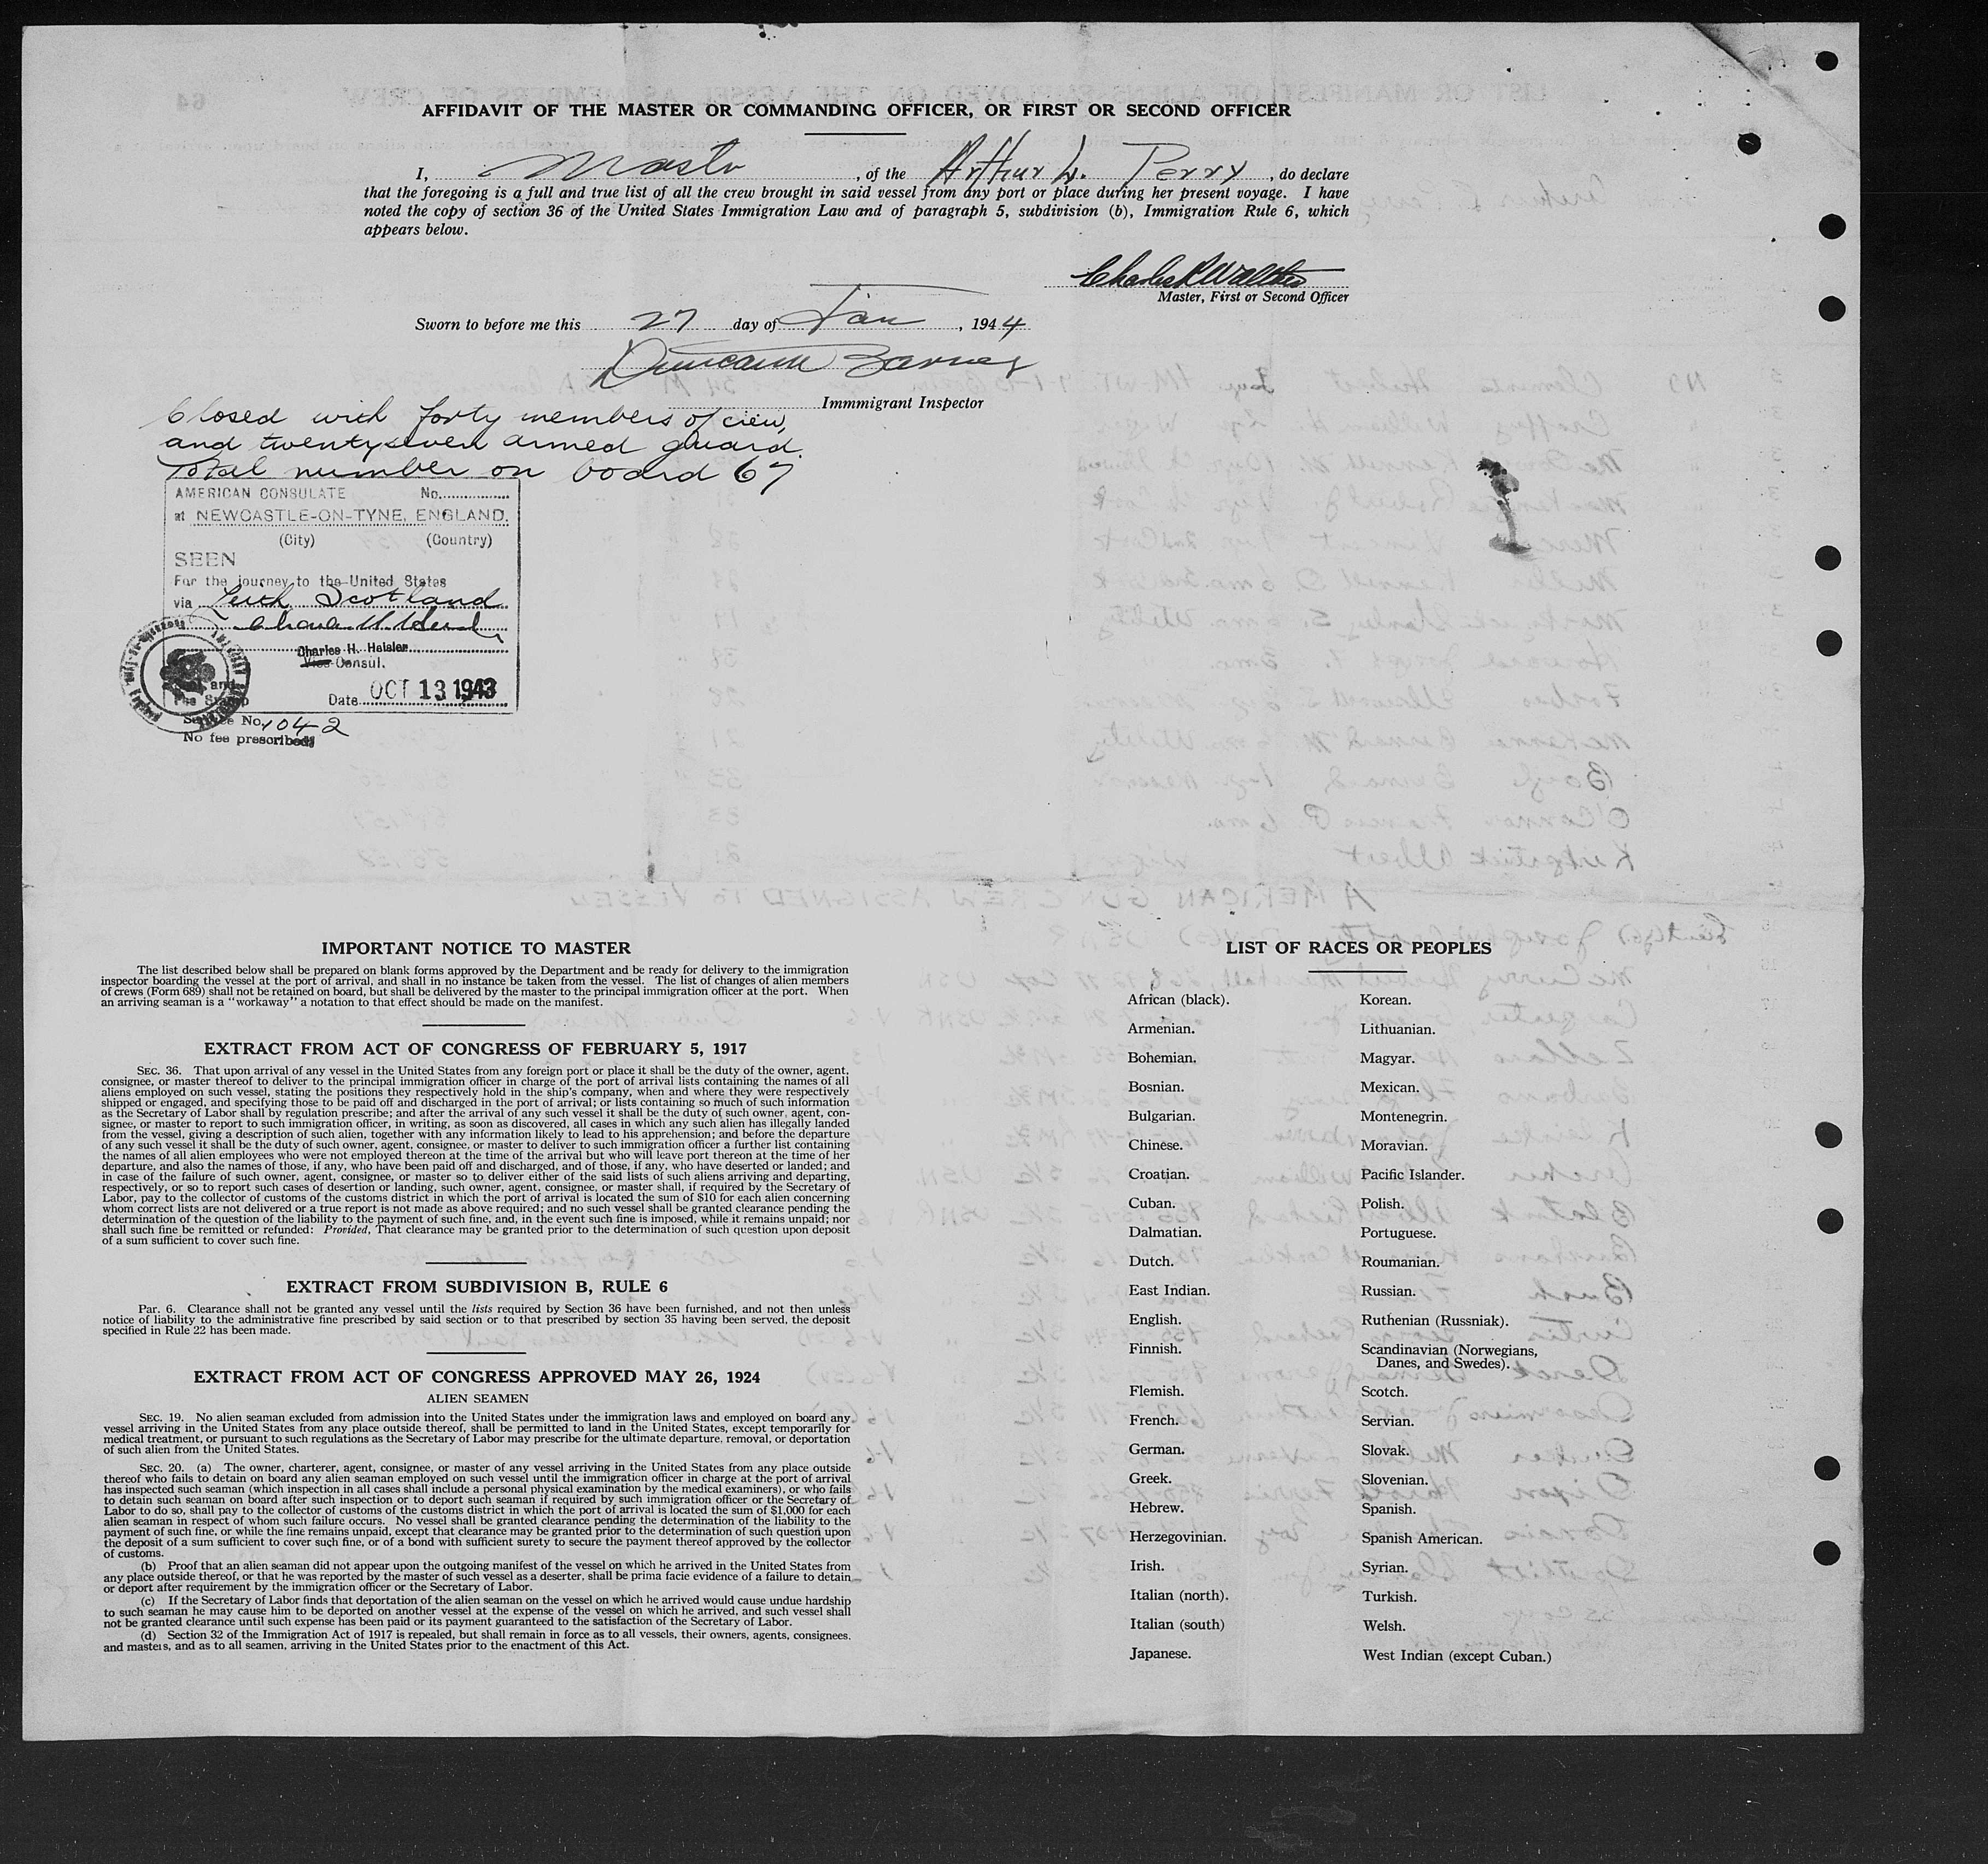 AFFIDAVIT OF THE MASTER OR COMMANDING OFFICER, OR FIRST OR SECOND OFFICER
I, Master, of the Arthur L. Perry, do declare
that the foregoing is a full and true list of all the crew brought in said vessel from any port or place during her present voyage. I have
noted the copy of section 36 of the United States Immigration Law and of paragraph 5, subdivision (b), Immigration Rule 6, which
appears below.
Master, First or Second Officer
Sworn to before me this 27 day of Jan, 1944
Immmigrant Inspector
Closed with forty members of crew,
and twentyseven armed guard.
Total number on board 67
AMERICAN CONSULATE No.
at NEWCASTLE-ON-TYNE, ENGLAND.
(City) (Country)
SEEN
For the journey to the United States
via Leith Scotland
Charles H. Heisler
Vice Consul.
Date OCT 13 1943
Fee Stamp
Service No. 1042
No fee prescribed
IMPORTANT NOTICE TO MASTER
The list described below shall be prepared on blank forms approved by the Department and be ready for delivery to the immigration
inspector boarding the vessel at the port of arrival, and shall in no instance be taken from the vessel. The list of changes of alien members
of crews (Form 689) shall not be retained on board, but shall be delivered by the master to the principal immigration officer at the port. When
an arriving seaman is a "workaway" a notation to that effect should be made on the manifest.
EXTRACT FROM ACT OF CONGRESS OF FEBRUARY 5, 1917
SEC. 36. That upon arrival of any vessel in the United States from any foreign port or place it shall be the duty of the owner, agent,
consignee, or master thereof to deliver to the principal immigration officer in charge of the port of arrival lists containing the names of all
aliens employed on such vessel, stating the positions they respectively hold in the ship's company, when and where they were respectively
shipped or engaged, and specifying those to be paid off and discharged in the port of arrival; or lists containing so much of such information
as the Secretary of Labor shall by regulation prescribe; and after the arrival of any such vessel it shall be the duty of such owner, agent, con-
signee, or master to report to such immigration officer, in writing, as soon as discovered, all cases in which any such alien has illegally landed
from the vessel, giving a description of such alien, together with any information likely to lead to his apprehension; and before the departure
of any such vessel it shall be the duty of such owner, agent, consignee, or master to deliver to such immigration officer a further list containing
the names of all alien employees who were not employed thereon at the time of the arrival but who will leave port thereon at the time of her
departure, and also the names of those, if any, who have been paid off and discharged, and of those, if any, who have deserted or landed; and
in case of the failure of such owner, agent, consignee, or master so to deliver either of the said lists of such aliens arriving and departing,
respectively, or so to report such cases of desertion or landing, such owner, agent, consignee, or master shall, if required by the Secretary of
Labor, pay to the collector of customs of the customs district in which the port of arrival is located the sum of $10 for each alien concerning
whom correct lists are not delivered or a true report is not made as above required; and no such vessel shall be granted clearance pending the
determination of the question of the liability to the payment of such fine, and, in the event such fine is imposed, while it remains unpaid; nor
shall such fine be remitted or refunded: Provided, That clearance may be granted prior to the determination of such question upon deposit
of a sum sufficient to cover such fine.
EXTRACT FROM SUBDIVISION B, RULE 6
Par. 6. Clearance shall not be granted any vessel until the lists required by Section 36 have been furnished, and not then unless
notice of liability to the administrative fine prescribed by said section or to that prescribed by section 35 having been served, the deposit
specified in Rule 22 has been made.
EXTRACT FROM ACT OF CONGRESS APPROVED MAY 26, 1924
ALIEN SEAMEN
SEC. 19. No alien seaman excluded from admission into the United States under the immigration laws and employed on board any
vessel arriving in the United States from any place outside thereof, shall be permitted to land in the United States, except temporarily for
medical treatment, or pursuant to such regulations as the Secretary of Labor may prescribe for the ultimate departure, removal, or deportation
of such alien from the United States.
SEC. 20. (a) The owner, charterer, agent, consignee, or master of any vessel arriving in the United States from any place outside
thereof who fails to detain on board any alien seaman employed on such vessel until the immigration officer in charge at the port of arrival
has inspected such seaman (which inspection in all cases shall include a personal physical examination by the medical examiners), or who fails
to detain such seaman on board after such inspection or to deport such seaman if required by such immigration officer or the Secretary of
Labor to do so, shall pay to the collector of customs of the customs district in which the port of arrival is located the sum of $1,000 for each
alien seaman in respect of whom such failure occurs. No vessel shall be granted clearance pending the determination of the liability to the
payment of such fine, or while the fine remains unpaid, except that clearance may be granted prior to the determination of such question upon
the deposit of a sum sufficient to cover such fine, or of a bond with sufficient surety to secure the payment thereof approved by the collector
of customs.
(b) Proof that an alien seaman did not appear upon the outgoing manifest of the vessel on which he arrived in the United States from
any place outside thereof, or that he was reported by the master of such vessel as a deserter, shall be prima facie evidence of a failure to detain
or deport after requirement by the immigration officer or the Secretary of Labor.
(c) If the Secretary of Labor finds that deportation of the alien seaman on the vessel on which he arrived would cause undue hardship
to such seaman he may cause him to be deported on another vessel at the expense of the vessel on which he arrived, and such vessel shall
not be granted clearance until such expense has been paid or its payment guaranteed to the satisfaction of the Secretary of Labor.
(d) Section 32 of the Immigration Act of 1917 is repealed, but shall remain in force as to all vessels, their owners, agents, consignees,
and masters, and as to all seamen, arriving in the United States prior to the enactment of this Act.
LIST OF RACES OR PEOPLES
African (black).
Armenian.
Bohemian.
Bosnian.
Bulgarian.
Chinese.
Croatian.
Cuban.
Dalmatian.
Dutch.
East Indian.
English.
Finnish.
Flemish.
French.
German.
Greek.
Hebrew.
Herzegovinian.
Irish.
Italian (north).
Italian (south)
Japanese.
Korean.
Lithuanian.
Magyar.
Mexican.
Montenegrin.
Moravian.
Pacific Islander.
Polish.
Portuguese.
Roumanian.
Russian.
Ruthenian (Russniak).
Scandinavian (Norwegians,
Danes, and Swedes).
Scotch.
Servian.
Slovak.
Slovenian.
Spanish.
Spanish American.
Syrian.
Turkish.
Welsh.
West Indian (except Cuban.)